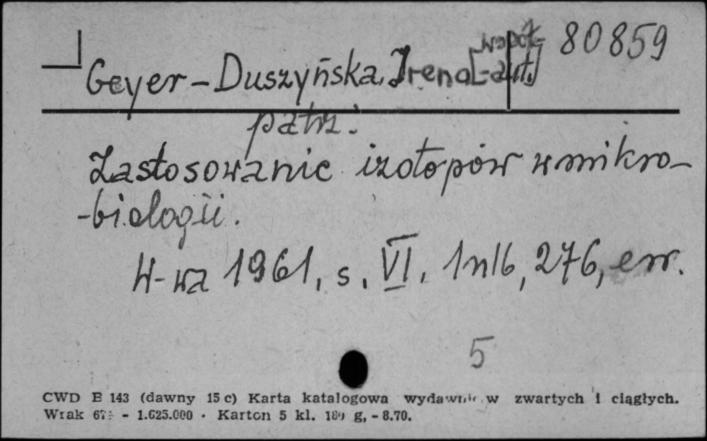 80859
Geyer-Duszyńska, Irena [współ-aut.]
patrz:
Zastosowanie izotopów w mikro-
-biologii.
W-wa 1961, s. VI, 1 nlb, 276, err.
5
CWD E 143 (dawny 15 c) Karta katalogowa wydawnictw zwartych i ciągłych.
Wrak - 1.625.000 · Karton 5 kl. 180 g, - 8.70.